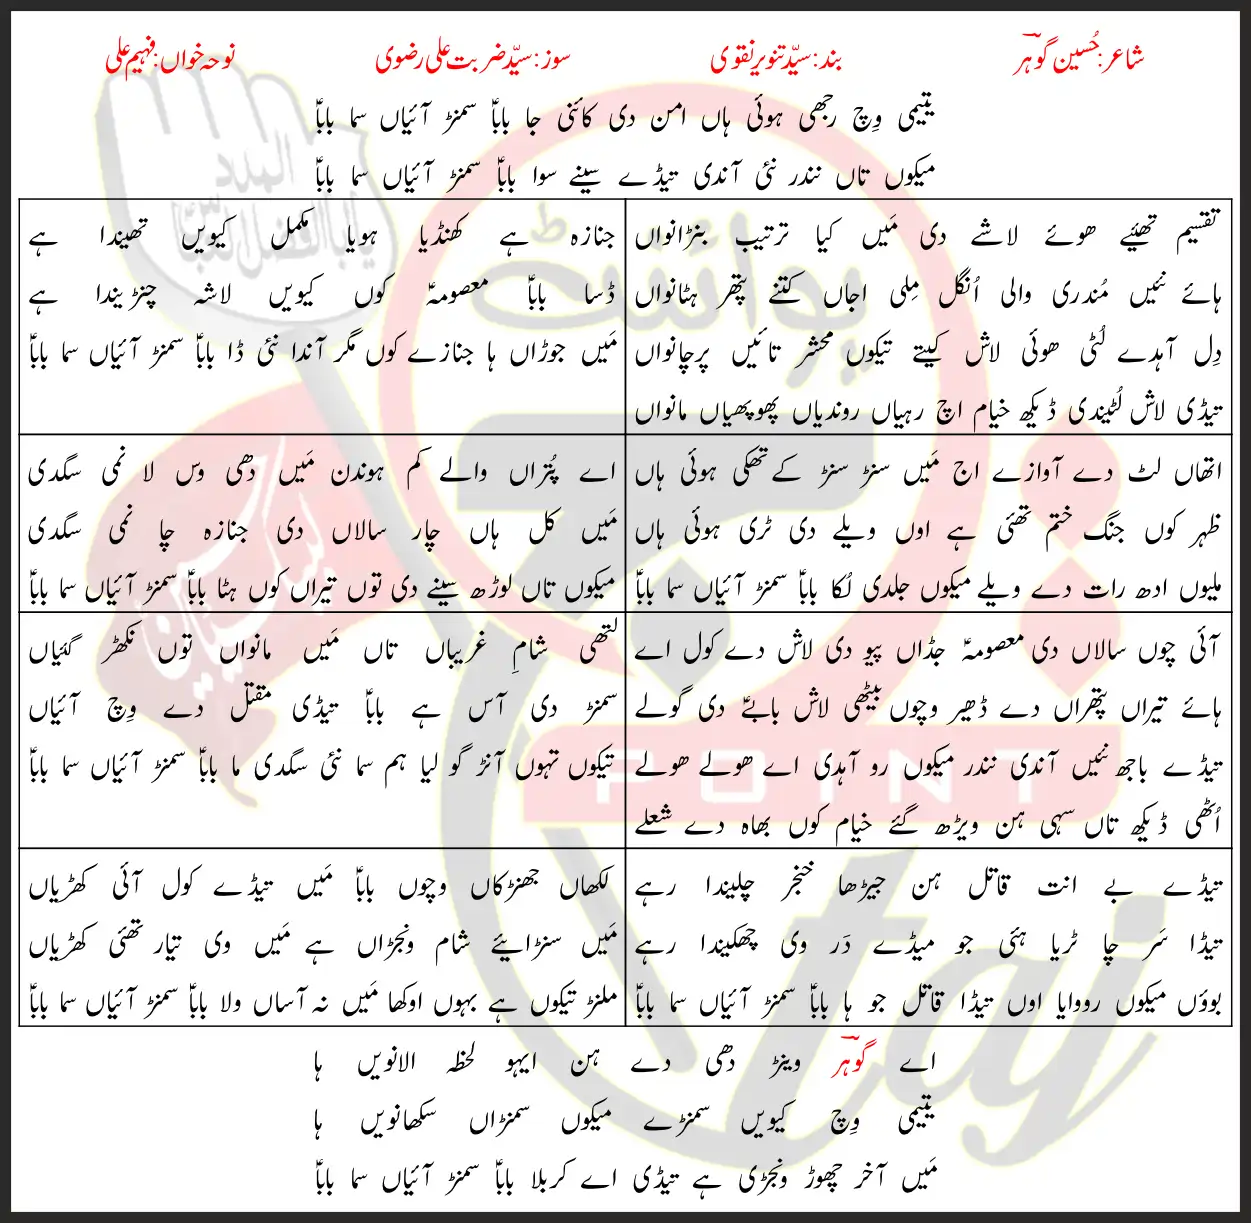 شاعر:حُسین گوہرؔ بند:سیّد تنویر نقوی سوز:سیّد ضربت علی رضوی نوحہ خواں:فہیم علی
یتیمی وِچ رجھی ہوئی ہاں امن دی کائنی جا باباؑ سمنڑ آئیاں سما باباؑ
میکوں تاں نندر نئی آندی تیڈے سینے سوا باباؑ سمنڑ آئیاں سما باباؑ
تقسیم تھئیے ھوئے لاشے دی مَیں کیا ترتیب بنڑانواں
ہائے نئیں مُندری والی اُنگل مِلی اجاں کتنے پتھر ہٹانواں
دِل آہدے لُٹی ھوئی لاش کیتے تیکوں محشر تائیں پرچانواں
تیڈی لاش لُٹیندی ڈیکھ خیام اچ رہیاں روندیاں پھوپھیاں مانواں
جنازہ ہے کھنڈیا ہویا مکمل کیویں تھیندا ہے
ڈسا باباؑ معصومہؑ کوں کیویں لاشہ چنڑیندا ہے
مَیں جوڑاں ہا جنازے کوں مگر آندا نئی ڈا باباؑ سمنڑ آئیاں سما باباؑ
اتھاں لٹ دے آوازے اج مَیں سنڑ سنڑ کے تھکی ہوئی ہاں
ظہر کوں جنگ ختم تھئی ہے اوں ویلے دی ٹری ہوئی ہاں
ملیوں ادھ رات دے ویلے میکوں جلدی لُکا باباؑ سمنڑ آئیاں سما باباؑ
اے پُتراں والے کم ہوندن مَیں دھی وس لا نمی سگدی
مَیں کل ہاں چار سالاں دی جنازہ چا نمی سگدی
میکوں تاں لوڑھ سینے دی توں تیراں کوں ہٹا باباؑ سمنڑ آئیاں سما باباؑ
آئی چوں سالاں دی معصومہؑ جڈاں پیو دی لاش دے کول اے
ہائے تیراں پتھراں دے ڈھیر وچوں بیٹھی لاش بابےؑ دی گولے
تیڈے باجھ نئیں آندی نندر میکوں رو آہدی اے ھولے ھولے
اُٹھی ڈیکھ تاں سہی ہن ویڑھ گئے خیام کوں بھاہ دے شعلے
لتھی شامِ غریباں تاں مَیں مانواں توں نکھڑ گئیاں
سمنڑ دی آس ہے باباؑ تیڈی مقتل دے وِچ آئیاں
تیکوں تہوں آنڑ گو لیا ہم سما نئی سگدی ما باباؑ سمنڑ آئیاں سما باباؑ
تیڈے بے انت قاتل ہن جیڑھا خنجر چلیندا رہے
تیڈا سَر چا ٹریا ہئی جو میڈے دَر وی چھکیندا رہے
بوؤں میکوں رووایا اوں تیڈا قاتل جو ہا باباؑ سمنڑ آئیاں سما باباؑ
لکھاں جھنڑکاں وچوں باباؑ مَیں تیڈے کول آئی کھڑیاں
مَیں سنڑائیے شام ونجڑاں ہے مَیں وی تیار تھئی کھڑیاں
ملنڑ تیکوں ہے بہوں اوکھا مَیں نہ آساں ولا باباؑ سمنڑ آئیاں سما باباؑ
اے گوہرؔ وینڑ دھی دے ہن ایہو لحظہ الانویں ہا
یتیمی وِچ کیویں سمنڑے میکوں سمنڑاں سکھانویں ہا
مَیں آخر چھوڑ ونجڑی ہے تیڈی اے کربلا باباؑ سمنڑ آئیاں سما باباؑ